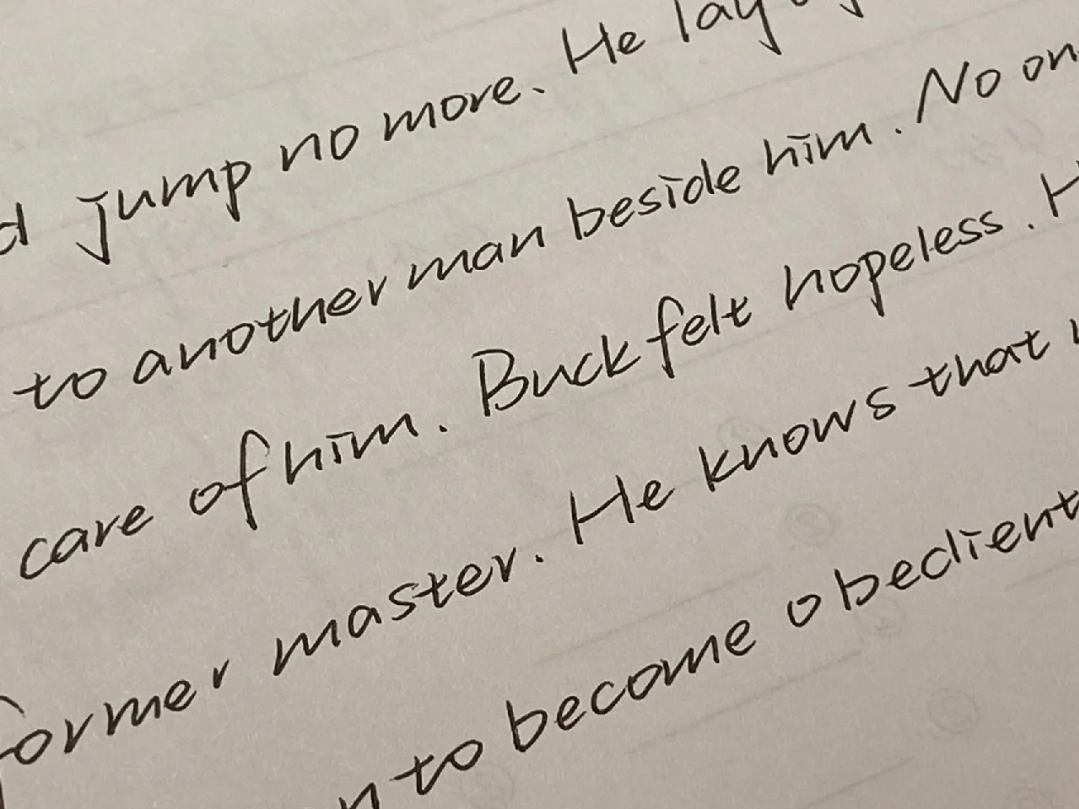 jump no more. He lay
to another man beside him. No
care of him. Buck felt hopeless.
former master. He knows that
to become obedient